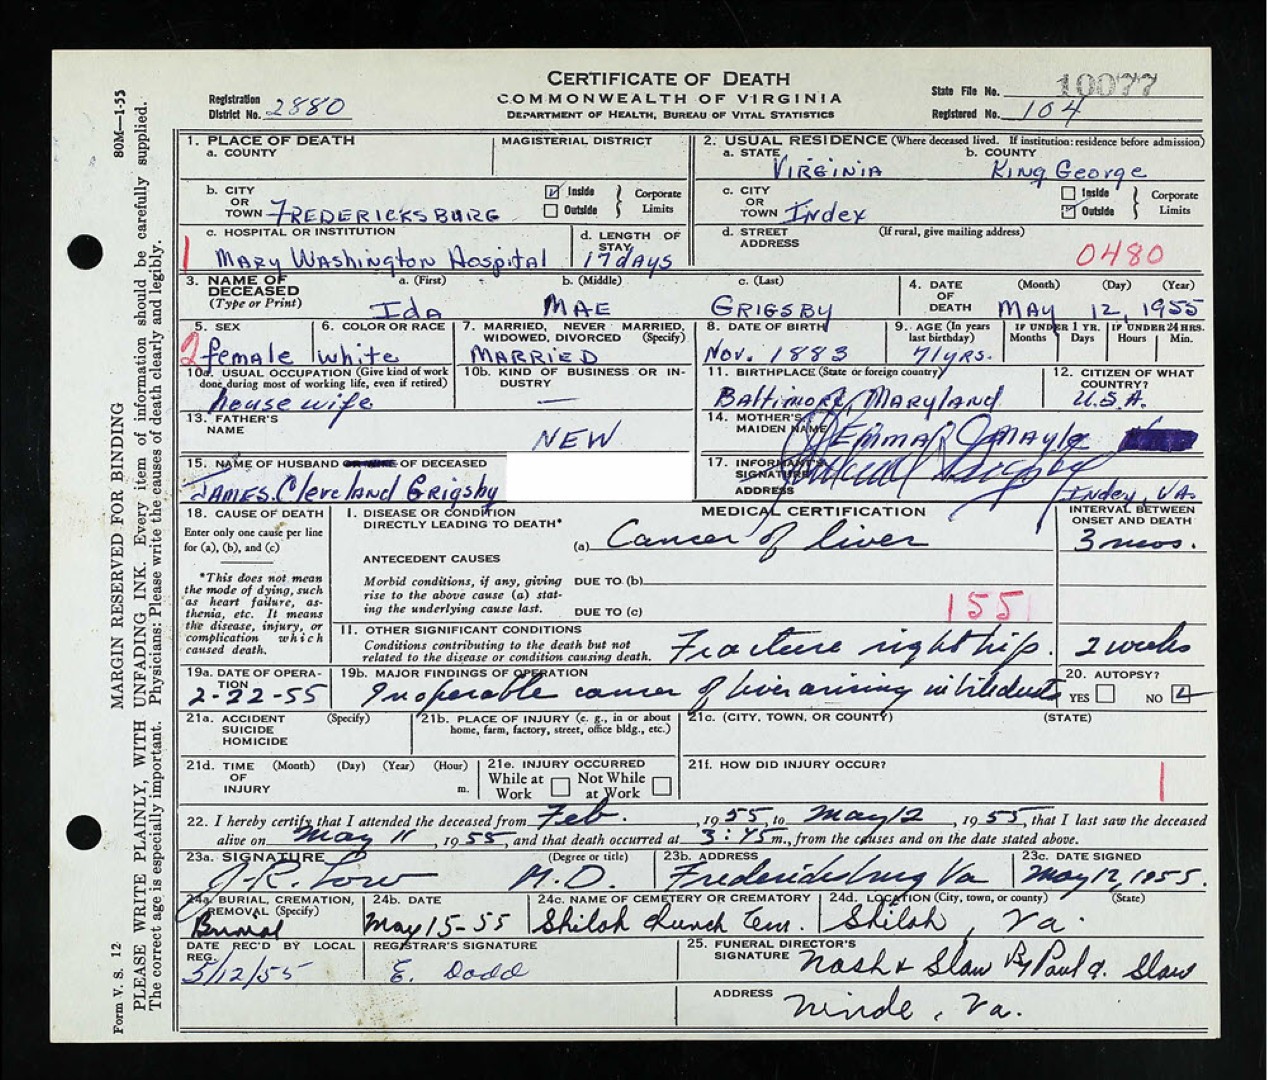 CERTIFICATE OF DEATH
COMMONWEALTH OF VIRGINIA
DEPARTMENT OF HEALTH, BUREAU OF VITAL STATISTICS
Registration District No. 2880
State File No. 10077
Registered No. 104
80M—1-55
1. PLACE OF DEATH
a. COUNTY
MAGISTERIAL DISTRICT
2. USUAL RESIDENCE (Where deceased lived. If institution: residence before admission)
a. STATE VIRGINIA
b. COUNTY KING GEORGE
b. CITY OR TOWN FREDERICKSBURG
Inside Outside } Corporate Limits
c. CITY OR TOWN Index
Inside Outside } Corporate Limits
c. HOSPITAL OR INSTITUTION
1 MARY WASHINGTON Hospital
d. LENGTH OF STAY 17 days
d. STREET ADDRESS (If rural, give mailing address)
0480
3. NAME OF DECEASED (Type or Print)
a. (First) Ida
b. (Middle) MAE
c. (Last) GRIGSBY
4. DATE OF DEATH (Month) (Day) (Year)
MAY 12, 1955
5. SEX
2 female
6. COLOR OR RACE
white
7. MARRIED, NEVER MARRIED, WIDOWED, DIVORCED (Specify)
MARRIED
8. DATE OF BIRTH
Nov. 1883
9. AGE (In years last birthday)
71 yrs.
IF UNDER 1 YR. Months Days
IF UNDER 24 HRS. Hours Min.
10a. USUAL OCCUPATION (Give kind of work done during most of working life, even if retired)
house wife
10b. KIND OF BUSINESS OR INDUSTRY
—
11. BIRTHPLACE (State or foreign country)
Baltimore, MARYLAND
12. CITIZEN OF WHAT COUNTRY?
U.S.A.
13. FATHER'S NAME
NEW
14. MOTHER'S MAIDEN NAME
EMMA
15. NAME OF HUSBAND OR WIFE OF DECEASED
JAMES Cleveland Grigsby
17. INFORMANT'S SIGNATURE
ADDRESS Index, VA.
18. CAUSE OF DEATH
Enter only one cause per line for (a), (b), and (c)
*This does not mean the mode of dying, such as heart failure, asthenia, etc. It means the disease, injury, or complication which caused death.
MEDICAL CERTIFICATION
INTERVAL BETWEEN ONSET AND DEATH
I. DISEASE OR CONDITION DIRECTLY LEADING TO DEATH*
(a) Cancer of liver
3 mos.
ANTECEDENT CAUSES
Morbid conditions, if any, giving rise to the above cause (a) stating the underlying cause last.
DUE TO (b)
DUE TO (c)
155
II. OTHER SIGNIFICANT CONDITIONS
Conditions contributing to the death but not related to the disease or condition causing death.
Fracture right hip.
2 weeks
19a. DATE OF OPERATION
2-22-55
19b. MAJOR FINDINGS OF OPERATION
Inoperable cancer of liver arising in bile ducts
20. AUTOPSY?
YES NO
21a. ACCIDENT SUICIDE HOMICIDE (Specify)
21b. PLACE OF INJURY (e. g., in or about home, farm, factory, street, office bldg., etc.)
21c. (CITY, TOWN, OR COUNTY) (STATE)
21d. TIME OF INJURY (Month) (Day) (Year) (Hour) m.
21e. INJURY OCCURRED
While at Work Not While at Work
21f. HOW DID INJURY OCCUR?
1
22. I hereby certify that I attended the deceased from Feb. , 1955, to May 12 , 1955, that I last saw the deceased
alive on May 11 , 1955, and that death occurred at 3:45 m., from the causes and on the date stated above.
23a. SIGNATURE (Degree or title)
J.R. Low M.D.
23b. ADDRESS
Fredericksburg Va
23c. DATE SIGNED
May 12, 1955.
24a. BURIAL, CREMATION, REMOVAL (Specify)
Burial
24b. DATE
May 15-55
24c. NAME OF CEMETERY OR CREMATORY
Shiloh Church Cem.
24d. LOCATION (City, town, or county) (State)
Shiloh, Va.
DATE REC'D BY LOCAL REG.
5/12/55
REGISTRAR'S SIGNATURE
E. Dodd
25. FUNERAL DIRECTOR'S SIGNATURE
Nash & Slaw By Paul A. Slaw
ADDRESS
Ninde, Va.
Form V. S. 12
MARGIN RESERVED FOR BINDING
PLEASE WRITE PLAINLY, WITH UNFADING INK. Every item of information should be carefully supplied.
The correct age is especially important. Physicians: Please write the causes of death clearly and legibly.